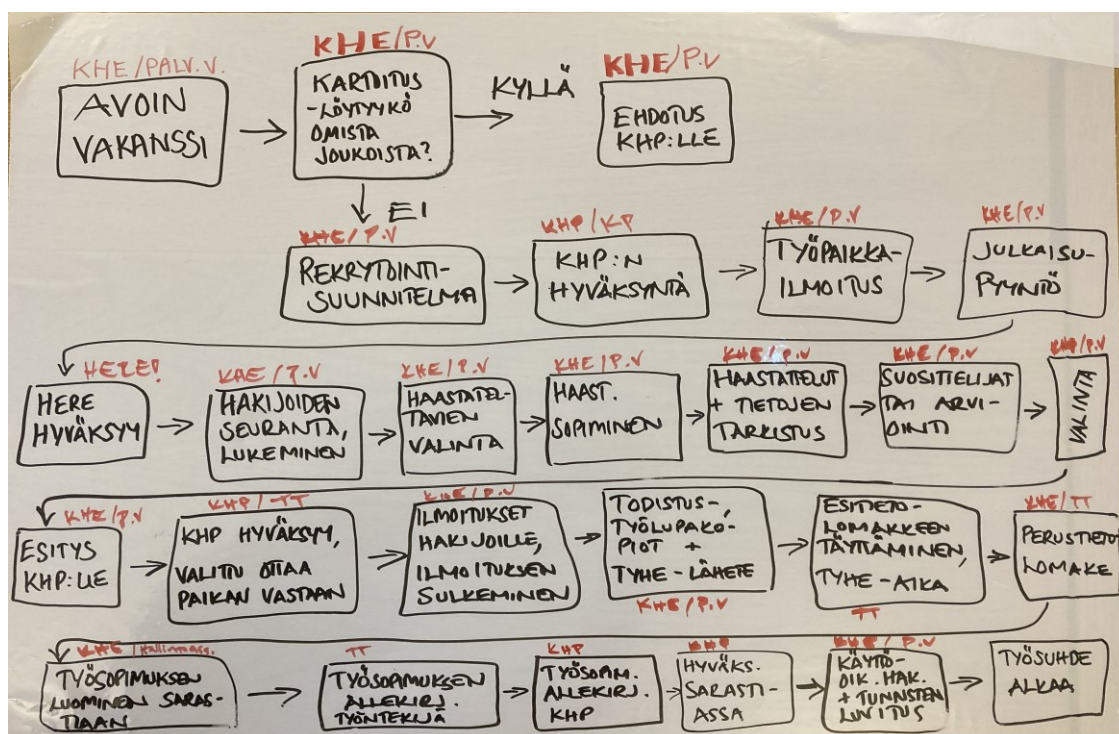 KHE/PALV.V.
AVOIN
VAKANSSI
KHE/P.V
KARTOITUS
-LÖYTYYKÖ
OMISTA
JOUKOISTA?
KYLLÄ
KHE/P.V
EHDOTUS
KHP:LLE
EI
KHE/P.V
REKRYTOINTI-
SUUNNITELMA
KHP/KP
KHP:N
HYVÄKSYNTÄ
KHE/P.V
TYÖPAIKKA-
ILMOITUS
KHE/P.V
JULKAISU-
PYYNTÖ
HERE!
HERE
HYVÄKSYY
KHE/P.V
HAKIJOIDEN
SEURANTA,
LUKEMINEN
KHE/P.V
HAASTATEL-
TAVIEN
VALINTA
KHE/P.V
HAAST.
SOPIMINEN
KHE/P.V
HAASTATTELUT
+ TIETOJEN
TARKISTUS
KHE/P.V
SUOSITTELIJAT
TAI ARVI-
OINTI
KHP/P.V
VALINTA
KHE/P.V
ESITYS
KHP:LLE
KHP/TT
KHP HYVÄKSYY,
VALITTU OTTAA
PAIKAN VASTAAN
KHE/P.V
ILMOITUKSET
HAKIJOILLE,
ILMOITUKSEN
SULKEMINEN
TODISTUS-,
TYÖLUPAKO-
PIOT +
TYHE-LÄHETE
KHE/P.V
ESITIETO-
LOMAKKEEN
TÄYTTÄMINEN,
TYHE-AIKA
TT
KHE/TT
PERUSTIETO
LOMAKE
KHE
TYÖSOPIMUKSEN
LUOMINEN SARAS-
TIAAN
TT
TYÖSOPIMUKSEN
ALLEKIRJ.
TYÖNTEKIJÄ
KHP
TYÖSOPIM.
ALLEKIRJ.
KHP
KHP
HYVÄKS.
SARASTI-
ASSA
KHE/P.V
KÄYTTÖ-
OIK. HAK.
+ TUNNSTEN
LUVITUS
TYÖSUHDE
ALKAA